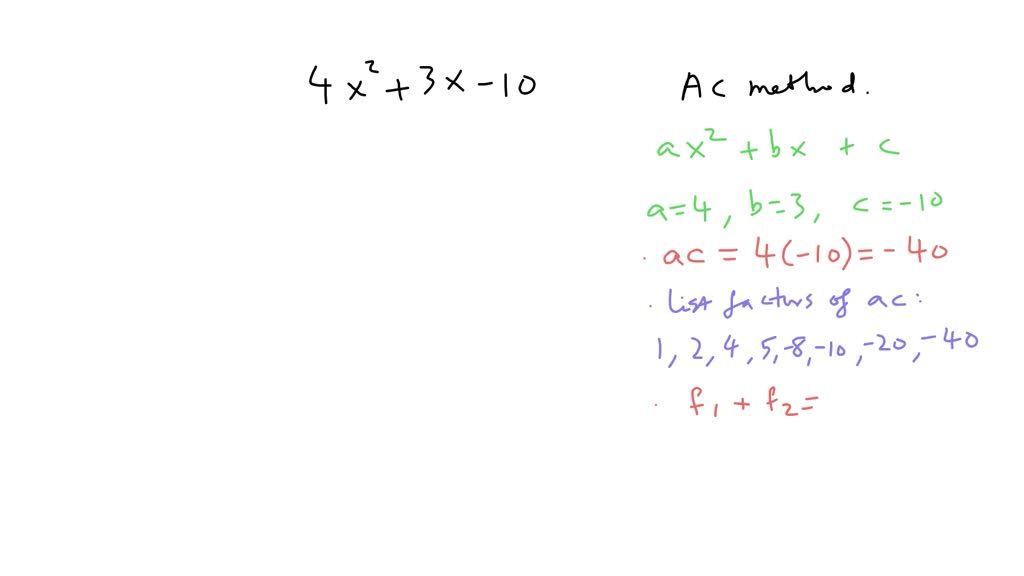 4x² + 3x - 10
AC method.
ax² + bx + c
a=4, b=3, c=-10
· ac = 4(-10) = -40
· list factors of ac:
1, 2, 4, 5, -8, -10, -20, -40
· f₁ + f₂ =